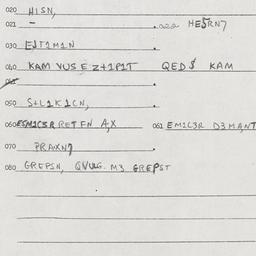 020 HISN,
021 – 022 HESRN7
030 E1T1M1N
040 KAM VUS E Z+1P1T QED$ KAM
050 S+L1K1CN,
060 EM1C3R RET EN A,X 061 EM1C3R D3MANT
070 PRAXN7
080 GREPSN, QVUG. M3 GREPST